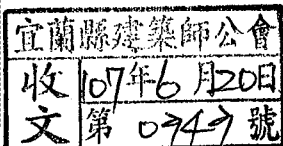 宜蘭縣建築師公會
收文
107年6月20日
第 0747 號